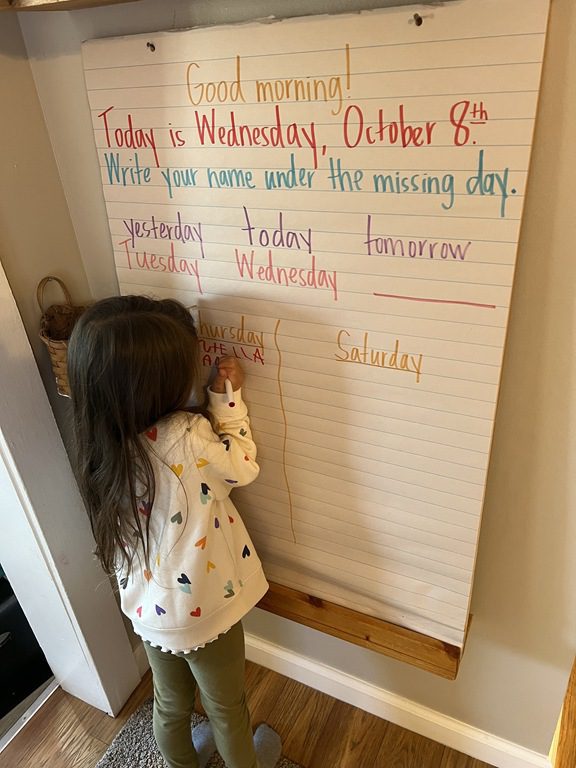 Good morning!
Today is Wednesday, October 8th.
Write your name under the missing day.
yesterday today tomorrow
Tuesday Wednesday
Thursday Saturday